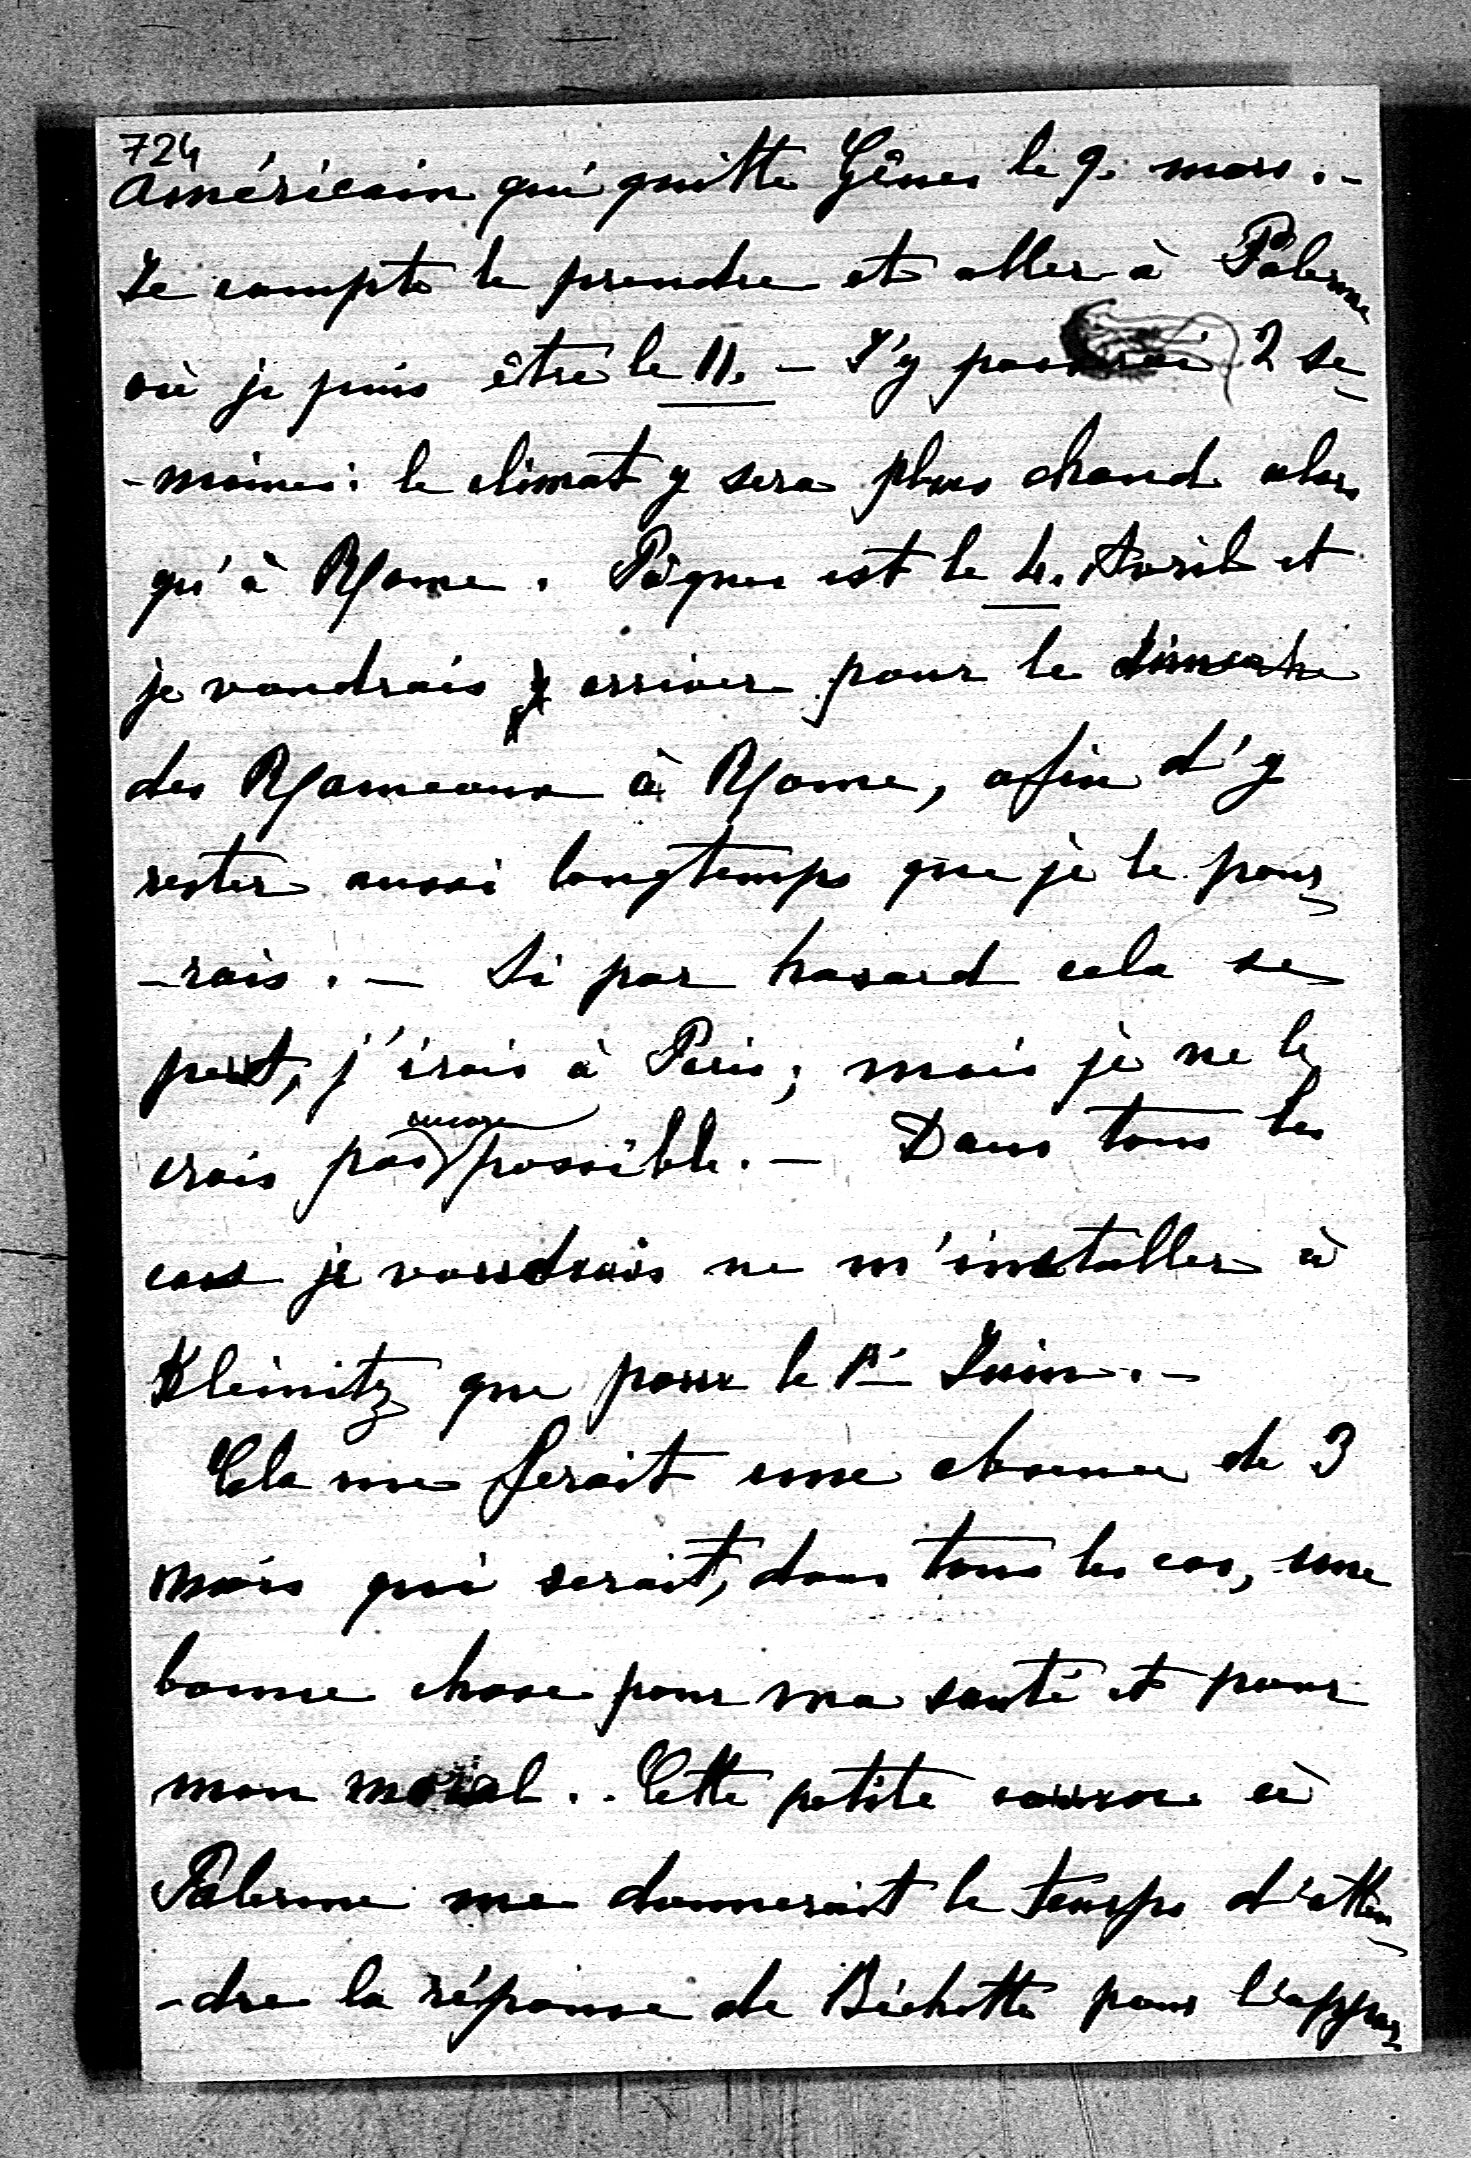 724
Américain qui quitte Gênes le 9. mars. -
Je compte le prendre et aller à Palerme
où je puis être le 11. - J'y passerai 2 se-
-maines: le climat y sera plus chaud alors
qu'à Rome. Pâques est le 4. Avril et
je voudrais y arriver pour le dimanche
des Rameaux à Rome, afin d'y
rester aussi longtemps que je le pour-
-rais. - Si par hasard cela se
peut, j'irais à Paris; mais je ne le
crois pas encore possible. - Dans tous les
cas je voudrais ne m'installer à
Kleinitz que pour le 1er Juin. -
Cela me ferait une absence de 3
mois qui serait, dans tous les cas, une
bonne chose pour ma santé et pour
mon moral.. Cette petite course à
Palerme me donnerait le temps d'atten-
-dre la réponse de Bichette pour l'appar-